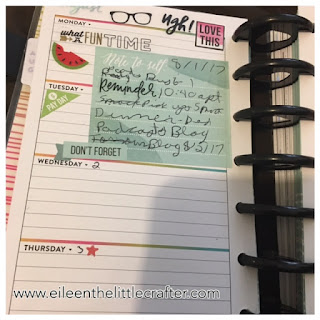 ugh!
LOVE THIS
MONDAY
what A FUN TIME
Note to self
8/1/17
Bust
Reminder 10:40 apt
TUESDAY
PAY DAY
Dinner-Ded
Podcasts Blog
Blog 8/2/17
DON'T FORGET
WEDNESDAY 2
THURSDAY 3
www.eileenthelittlecrafter.com